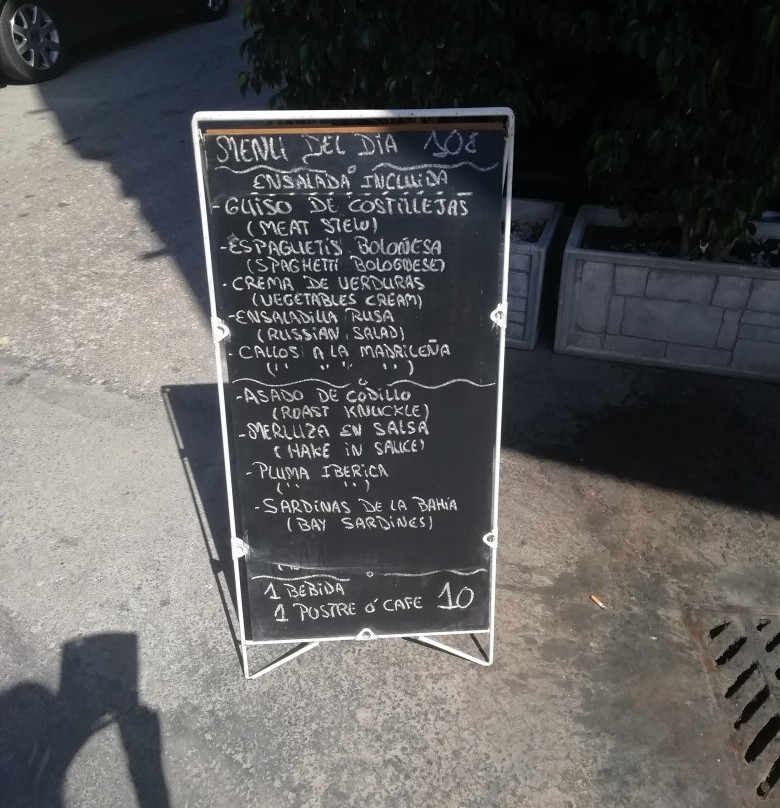 MENU DEL DIA 10€
ENSALADA INCLUIDA
-GUISO DE COSTILLEJAS
(MEAT STEW)
-ESPAGUETIS BOLOÑESA
(SPAGHETTI BOLOGNESE)
-CREMA DE VERDURAS
(VEGETABLES CREAM)
-ENSALADILLA RUSA
(RUSSIAN SALAD)
-CALLOS A LA MADRILEÑA
(" " " ")
-ASADO DE CODILLO
(ROAST KNUCKLE)
-MERLUZA EN SALSA
(HAKE IN SAUCE)
-PLUMA IBERICA
(" ")
-SARDINAS DE LA BAHIA
(BAY SARDINES)
1 BEBIDA
1 POSTRE Ó CAFE 10